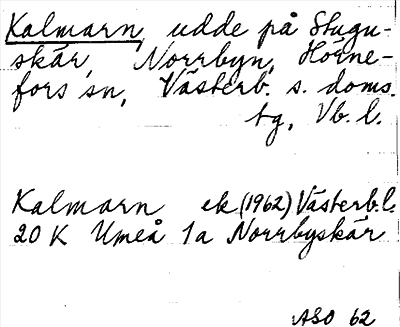 Kalmarn, udde på Stugu-
skär, Norrbyn, Hörne-
fors sn, Västerb. s. doms.
tg, Vb. l.
Kalmarn ek (1962) Västerb.l.
20 K Umeå 1a Norrbyskär
ASO 62